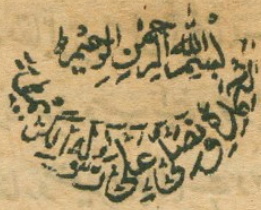 بسم الله الرحمن الرحيم
ونصلي على رسوله الكريم